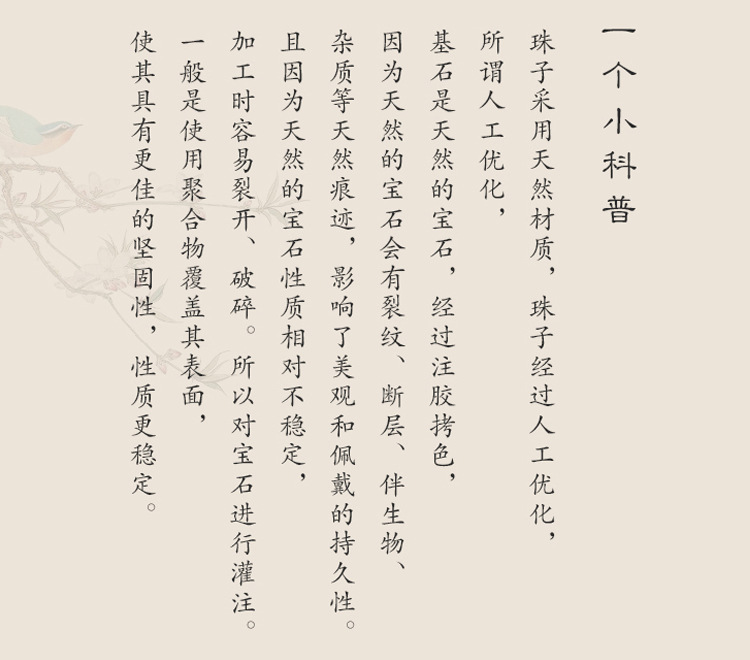 一个小科普
珠子采用天然材质，珠子经过人工优化，
所谓人工优化，
基石是天然的宝石，经过注胶拷色，
因为天然的宝石会有裂纹、断层、伴生物、
杂质等天然痕迹，影响了美观和佩戴的持久性。
且因为天然的宝石性质相对不稳定，
加工时容易裂开、破碎。所以对宝石进行灌注。
一般是使用聚合物覆盖其表面，
使其具有更佳的坚固性，性质更稳定。